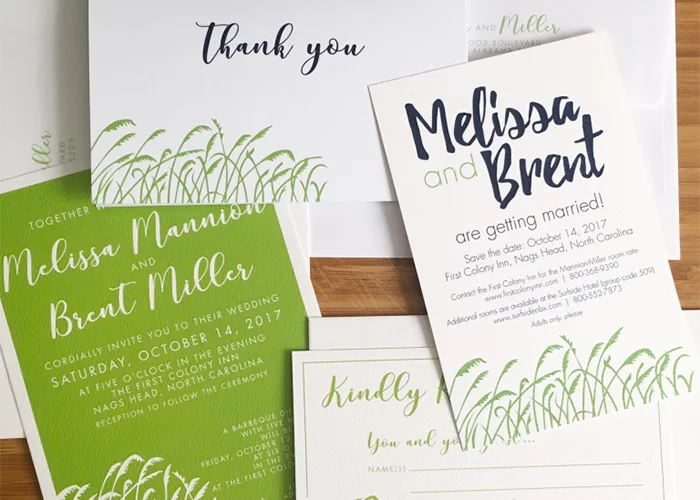 Thank you
AND Miller
OOD BOULEVARD
Miller
YARD
5209
Melissa
and
Brent
are getting married!
Save the date: October 14, 2017
First Colony Inn, Nags Head, North Carolina
Contact the First Colony Inn for the Mannion-Miller room rate
www.firstcolonyinn.com | 800-368-9390
Additional rooms are available at the Surfside Hotel (group code 509)
www.surfsideobx.com | 800-552-7873
Adults only, please
TOGETHER
Melissa Mannion
AND
Brent Miller
CORDIALLY INVITE YOU TO THEIR WEDDING
SATURDAY, OCTOBER 14, 2017
AT FIVE O'CLOCK IN THE EVENING
THE FIRST COLONY INN
NAGS HEAD, NORTH CAROLINA
RECEPTION TO FOLLOW THE CEREMONY
A BARBEQUE DI
WITH LIVE
WILL B
FRIDAY, OCTOBER 13
AT SIX O
IN THE E
AT THE FIRST COL
Kindly
You and your
NAME(S)